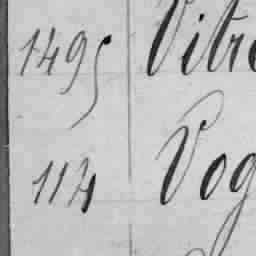 1495 Vitre
114 Vog